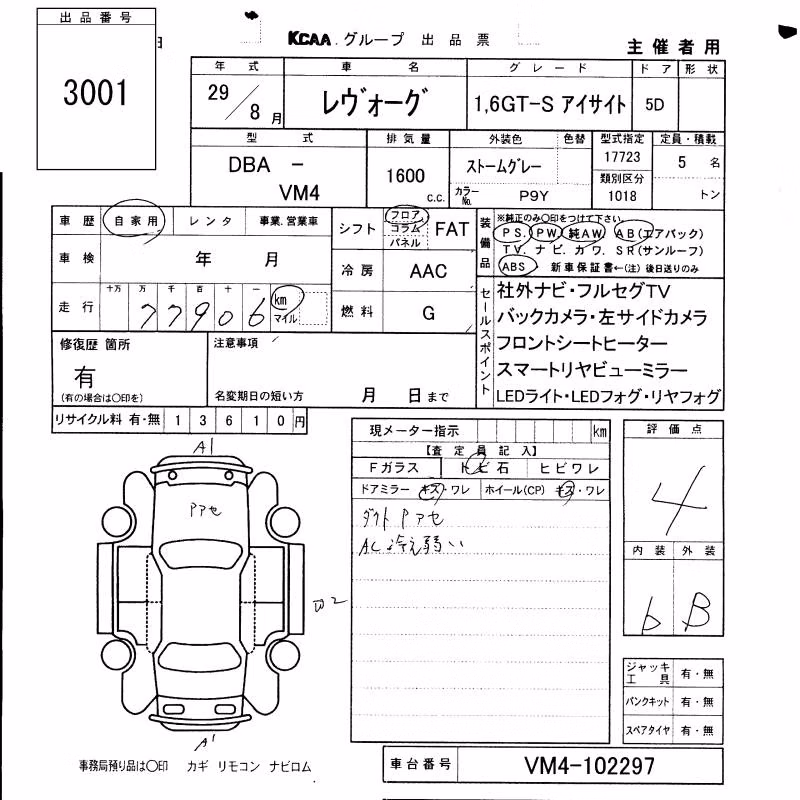 出品番号
3001
KCAA.グループ 出品票
主催者用
年式 車名 グレード ドア 形状
29/8月 レヴォーグ 1,6GT-S アイサイト 5D
型式 排気量 外装色 色替 型式指定 定員・積載
DBA - VM4 1600 c.c. ストームグレー 17723 5 名
カラーNo. P9Y 類別区分 1018 トン
車歴 自家用 レンタ 事業.営業車
シフト フロア コラム パネル FAT
装備品 ※純正のみ〇印をつけて下さい
PS. PW. 純AW. AB(エアバック)
TV. ナビ. カワ. SR(サンルーフ)
ABS 新車保証書←(注) 後日送りのみ
車検 年 月
冷房 AAC
走行 十万 万 千 百 十 一
77906 km マイル
燃料 G
セールスポイント
社外ナビ・フルセグTV
バックカメラ・左サイドカメラ
フロントシートヒーター
スマートリヤビューミラー
LEDライト・LEDフォグ・リヤフォグ
修復歴 箇所
有
(有の場合は〇印を)
注意事項
名変期日の短い方 月 日まで
リサイクル料 有・無 13610円
現メーター指示 km
【査定員記入】
Fガラス トビ石 ヒビワレ
ドアミラー キズ・ワレ ホイール(CP) キズ・ワレ
ダクトPアセ
AC 冷え弱い
評価点
4
内装 外装
b B
A1
Pアセ
A1
ジャッキ工具 有・無
パンクキット 有・無
スペアタイヤ 有・無
事務局預り品は〇印 カギ リモコン ナビロム
車台番号 VM4-102297